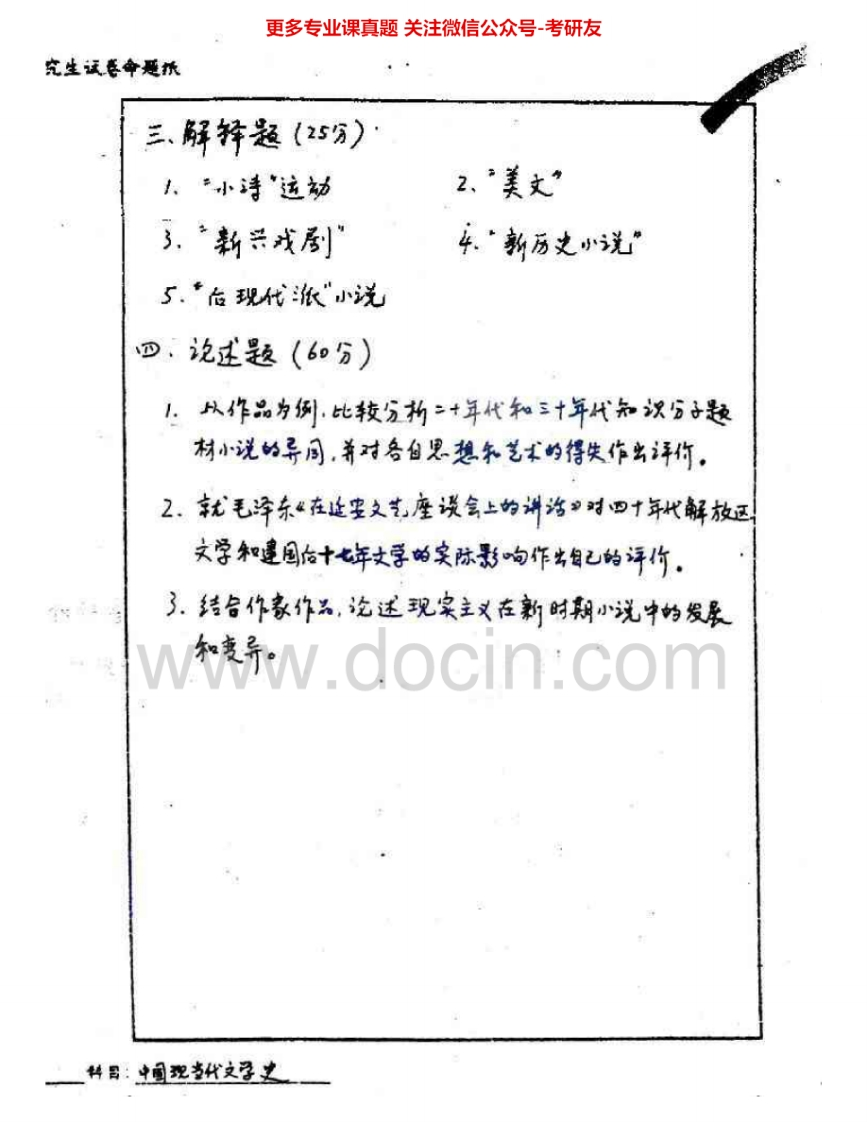 更多专业课真题 关注微信公众号-考研友
究生试卷命题纸
三、解释题(25分)
1、"小诗"运动 2、"美文"
3、"新兴戏剧" 4、"新历史小说"
5、"后现代派"小说
四、论述题(60分)
1、从作品为例,比较分析二十年代和三十年代知识分子题
材小说的异同,并对各自思想和艺术的得失作出评价。
2、就毛泽东《在延安文艺座谈会上的讲话》对四十年代解放区
文学和建国后十七年文学的实际影响作出自己的评价。
3、结合作家作品,论述现实主义在新时期小说中的发展
和变异。
www.docin.com
科目:中国现当代文学史